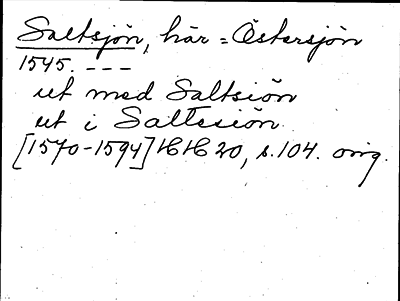 Saltsjön, här = Östersjön
1545. ---
ut med Saltsiön
ut i Saltssiön
[1570-1594] HH 20, s. 104. orig.